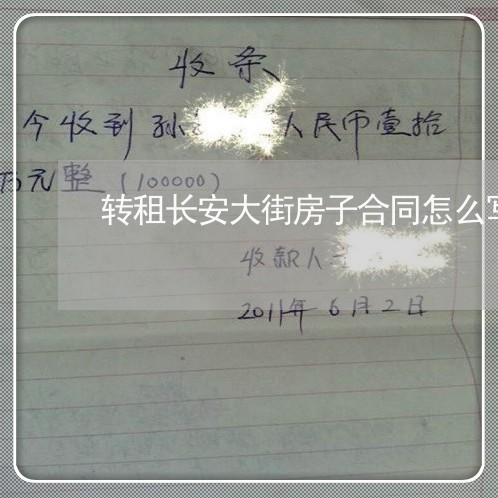 收条
今收到孙 人民币壹拾
万元整(100000)
转租长安大街房子合同怎么写
收款人
2011年6月2日